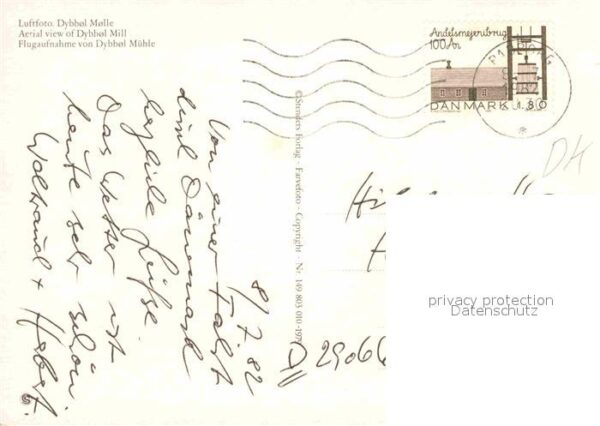 Luftfoto. Dybbøl Mølle
Aerial view of Dybbøl Mill
Flugaufnahme von Dybbøl Mühle
Andelsmejeribrug
100 År
DANMARK 1.80
8/7.82
Von einer Fahrt
durch Dänemark
herzliche Grüße
Das Wetter ist
heute sehr schön.
Waltraud + Hubert.
© Stenders Forlag - Farvefoto - Copyright - Nr. 149 803 010-197
D 29066
DK
privacy protection
Datenschutz